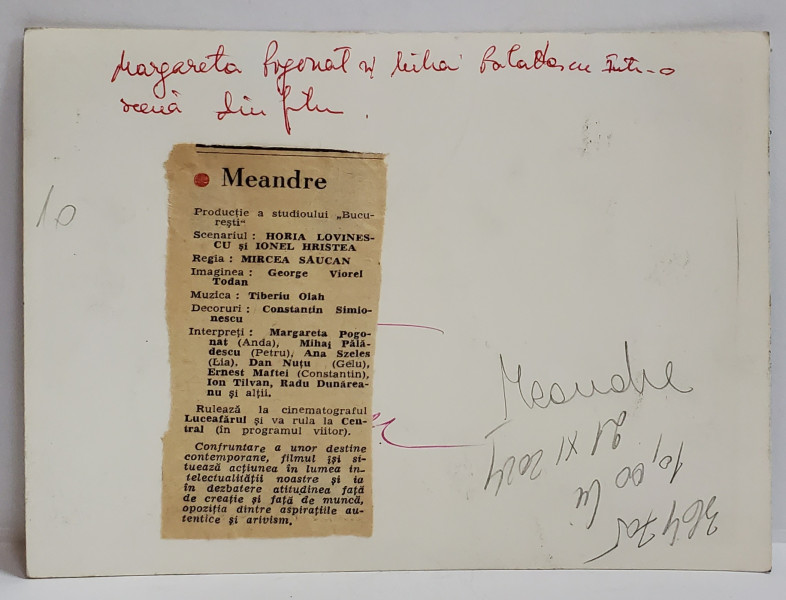 Margareta Pogonat și Mihai Paladescu într-o
scenă din film.
10
Meandre
Producție a studioului „Bucu-
rești“
Scenariul : HORIA LOVINES-
CU și IONEL HRISTEA
Regia : MIRCEA SĂUCAN
Imaginea : George Viorel
Todan
Muzica : Tiberiu Olah
Decoruri : Constantin Simio-
nescu
Interpreți : Margareta Pogo-
nat (Anda), Mihai Pălă-
descu (Petru), Ana Szeles
(Lia), Dan Nuțu (Gelu),
Ernest Maftei (Constantin),
Ion Tilvan, Radu Dunărea-
nu și alții.
Rulează la cinematograful
Luceafărul și va rula la Cen-
tral (în programul viitor).
Confruntare a unor destine
contemporane, filmul își si-
tuează acțiunea în lumea in-
telectualității noastre și ia
în dezbatere atitudinea față
de creație și față de muncă,
opoziția dintre aspirațiile au-
tentice și arivism.
Meandre
21 XI 2024
10,00 lei
364705